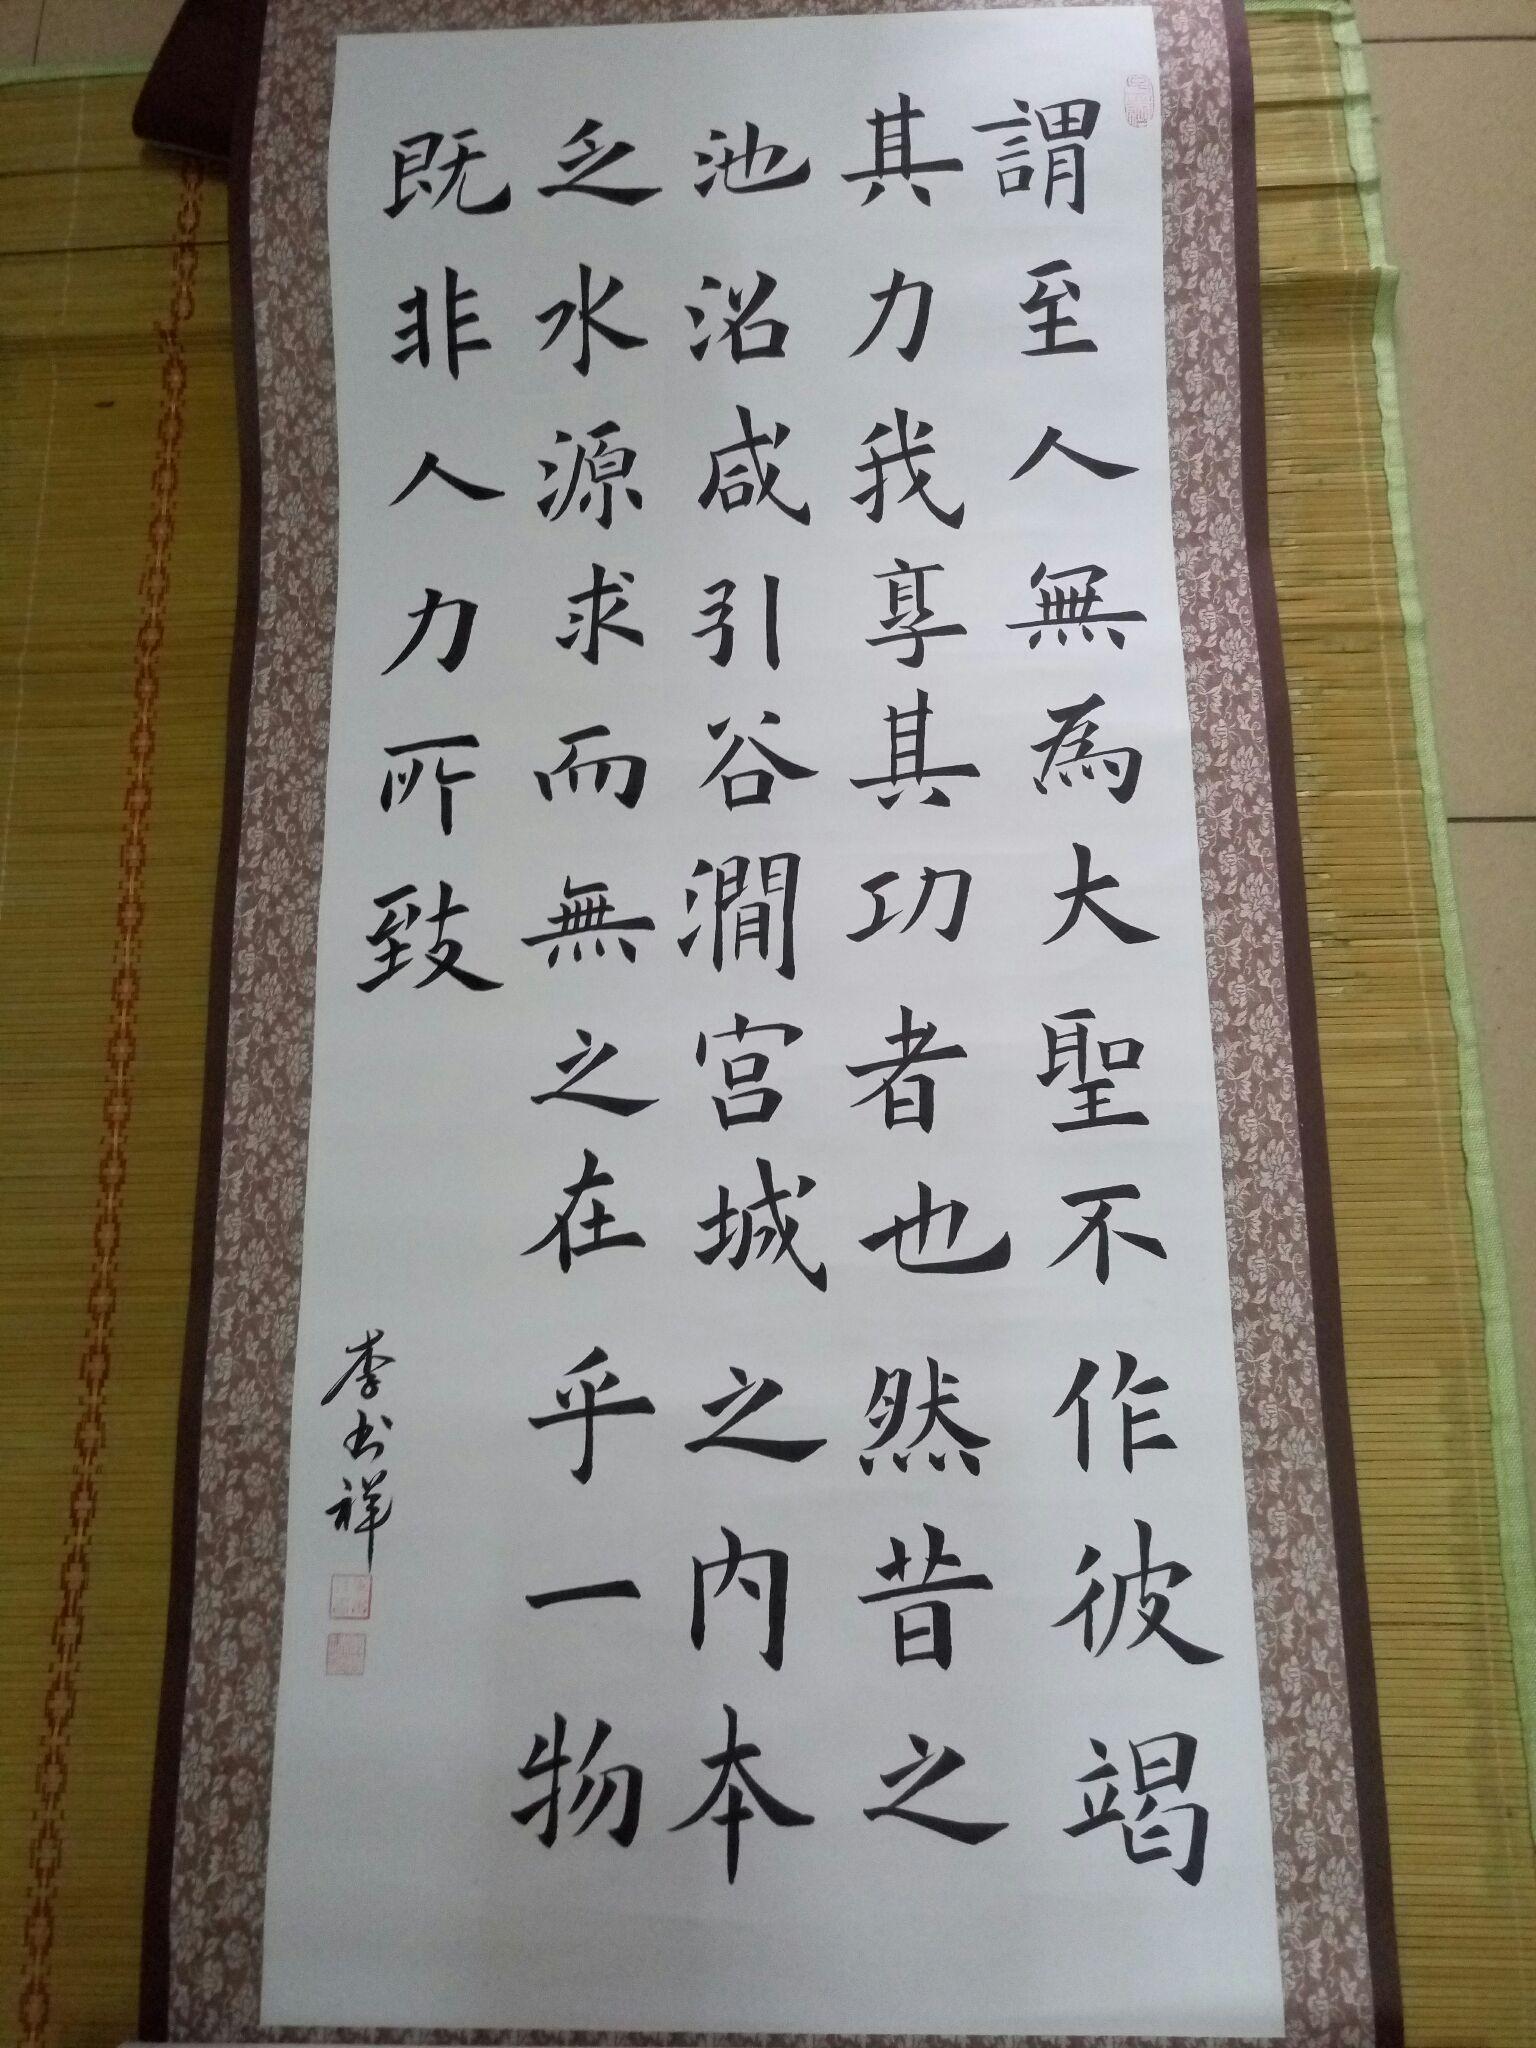 謂至人無為大聖不作彼竭
其力我享其功者也然昔之
池沼咸引谷澗宮城之內本
乏水源求而無之在乎一物
既非人力所致
李书祥